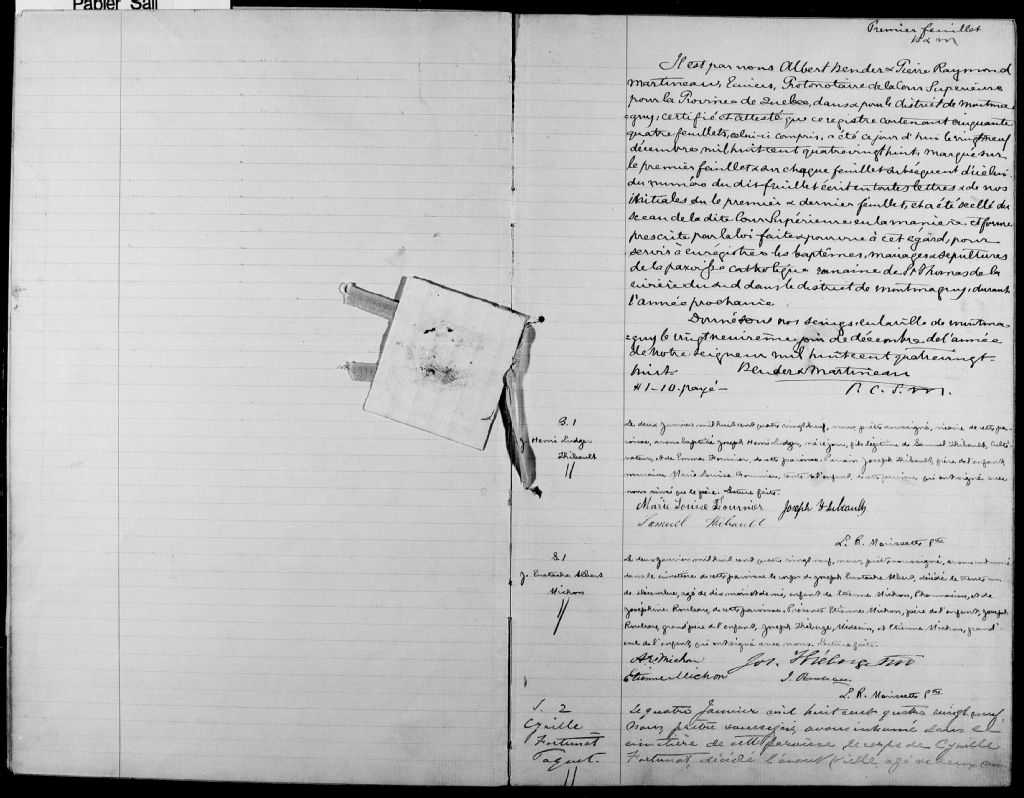 Papier Sali
Premier feuillet
B & M
Il est par nous Albert Bender & Pierre Raymond
Martineau, Ecuiers, Protonotaire de la Cour Superieure
pour la Province de Quebec, dans & pour le district de Montma-
gny, certifié et attesté que ce registre contenant cinquante
quatre feuillets, celui-ci compris, a été ce jour d'hui le vingt neuf
décembre mil huit cent quatrevingt huit, marqué sur
le premier feuillet & sur chaque feuillet subséquent d'icelui
du numéro du dit feuillet écrit en toutes lettres & de nos
initiales sur le premier & dernier feuillet, et a été scellé du
sceau de la dite Cour Supérieure en la manière et forme
prescrite par la loi faite & pourvue à cet égard, pour
servir à enrégistrer les baptêmes, mariages & sépultures
de la paroisse catholique romaine de St Thomas de la
rivière du sud dans le district de Montmagny, durant
l'année prochaine
Donné sous nos seings, en la ville de Montma-
gny le vingt neuvième jour de décembre de l'année
de Notre Seigneur mil huit cent quatrevingt
huit Bender & Martineau
#1-10. payé - P. C. S. M.
B. 1
J. Henri Ludger
Thibault
Le deux Janvier mil huit cent quatre vingt neuf, nous prêtre soussigné, vicaire de cette pa-
roisse, avons baptisé Joseph Henri Ludger, né ce jour, fils légitime de Samuel Thibault, Culti-
vateur, et de Emma Fournier, de cette paroisse. Parrain Joseph Thibault, père de l'enfant,
marraine Marie Louise Fournier, tante de l'enfant, de cette paroisse, qui ont signé avec
nous ainsi que le père. Lecture faite.
Marie Louise Fournier Joseph Thibault
Samuel Thibault
L. R. Morissette Ptre
S. 1
J. Eustache Albert
Michon
Le deux Janvier mil huit cent quatre vingt neuf, nous, prêtre soussigné, avons inhumé
dans le cimetière de cette paroisse le corps de Joseph Eustache Albert, décédé le trente un
de décembre, agé de dix mois et demi, enfant de Etienne Michon, et de
Joséphine Rouleau, de cette paroisse. Présents Etienne Michon, père de l'enfant, Joseph
Rouleau, grand'père de l'enfant, Joseph Théberge, Médecin, et Etienne Michon, grand'
oncle de l'enfant, qui ont signé avec nous. Lecture faite.
Michon Jos. Théberge
Etienne Michon J. Rouleau
L. R. Morissette Ptre
S. 2
Cyrille
Fortunat
Paquet.
Le quatre Janvier mil huit cent quatre vingt neuf,
nous prêtre soussigné, avons inhumé dans le
cimetière de cette paroisse le corps de Cyrille
Fortunat, décédé l'avant veille, agé de deux